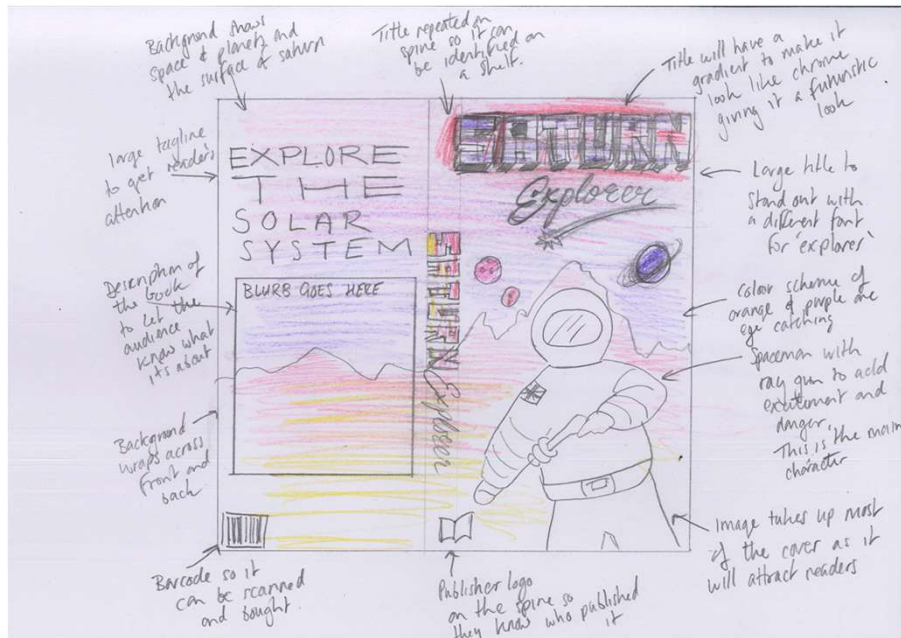 Background shows
space & planets and
the surface of saturn
Title repeated on
spine so it can
be identified on
a shelf.
Title will have a
gradient to make it
look like chrome
giving it a futuristic
look
large tagline
to get reader's
attention
EXPLORE
THE
SOLAR
SYSTEM
SATURN
Explorer
Large title to
stand out with
a different font
for 'explorer'
Description of
the book
to let the
audience
know what
it's about
BLURB GOES HERE
SATURN
Explorer
colour scheme of
orange & purple are
eye catching
Spaceman with
ray gun to add
excitement and
danger.
This is the main
character
Background
wraps across
front and
back
Image takes up most
of the cover as it
will attract readers
Barcode so it
can be scanned
and bought.
Publisher logo
on the spine so
they know who published
it